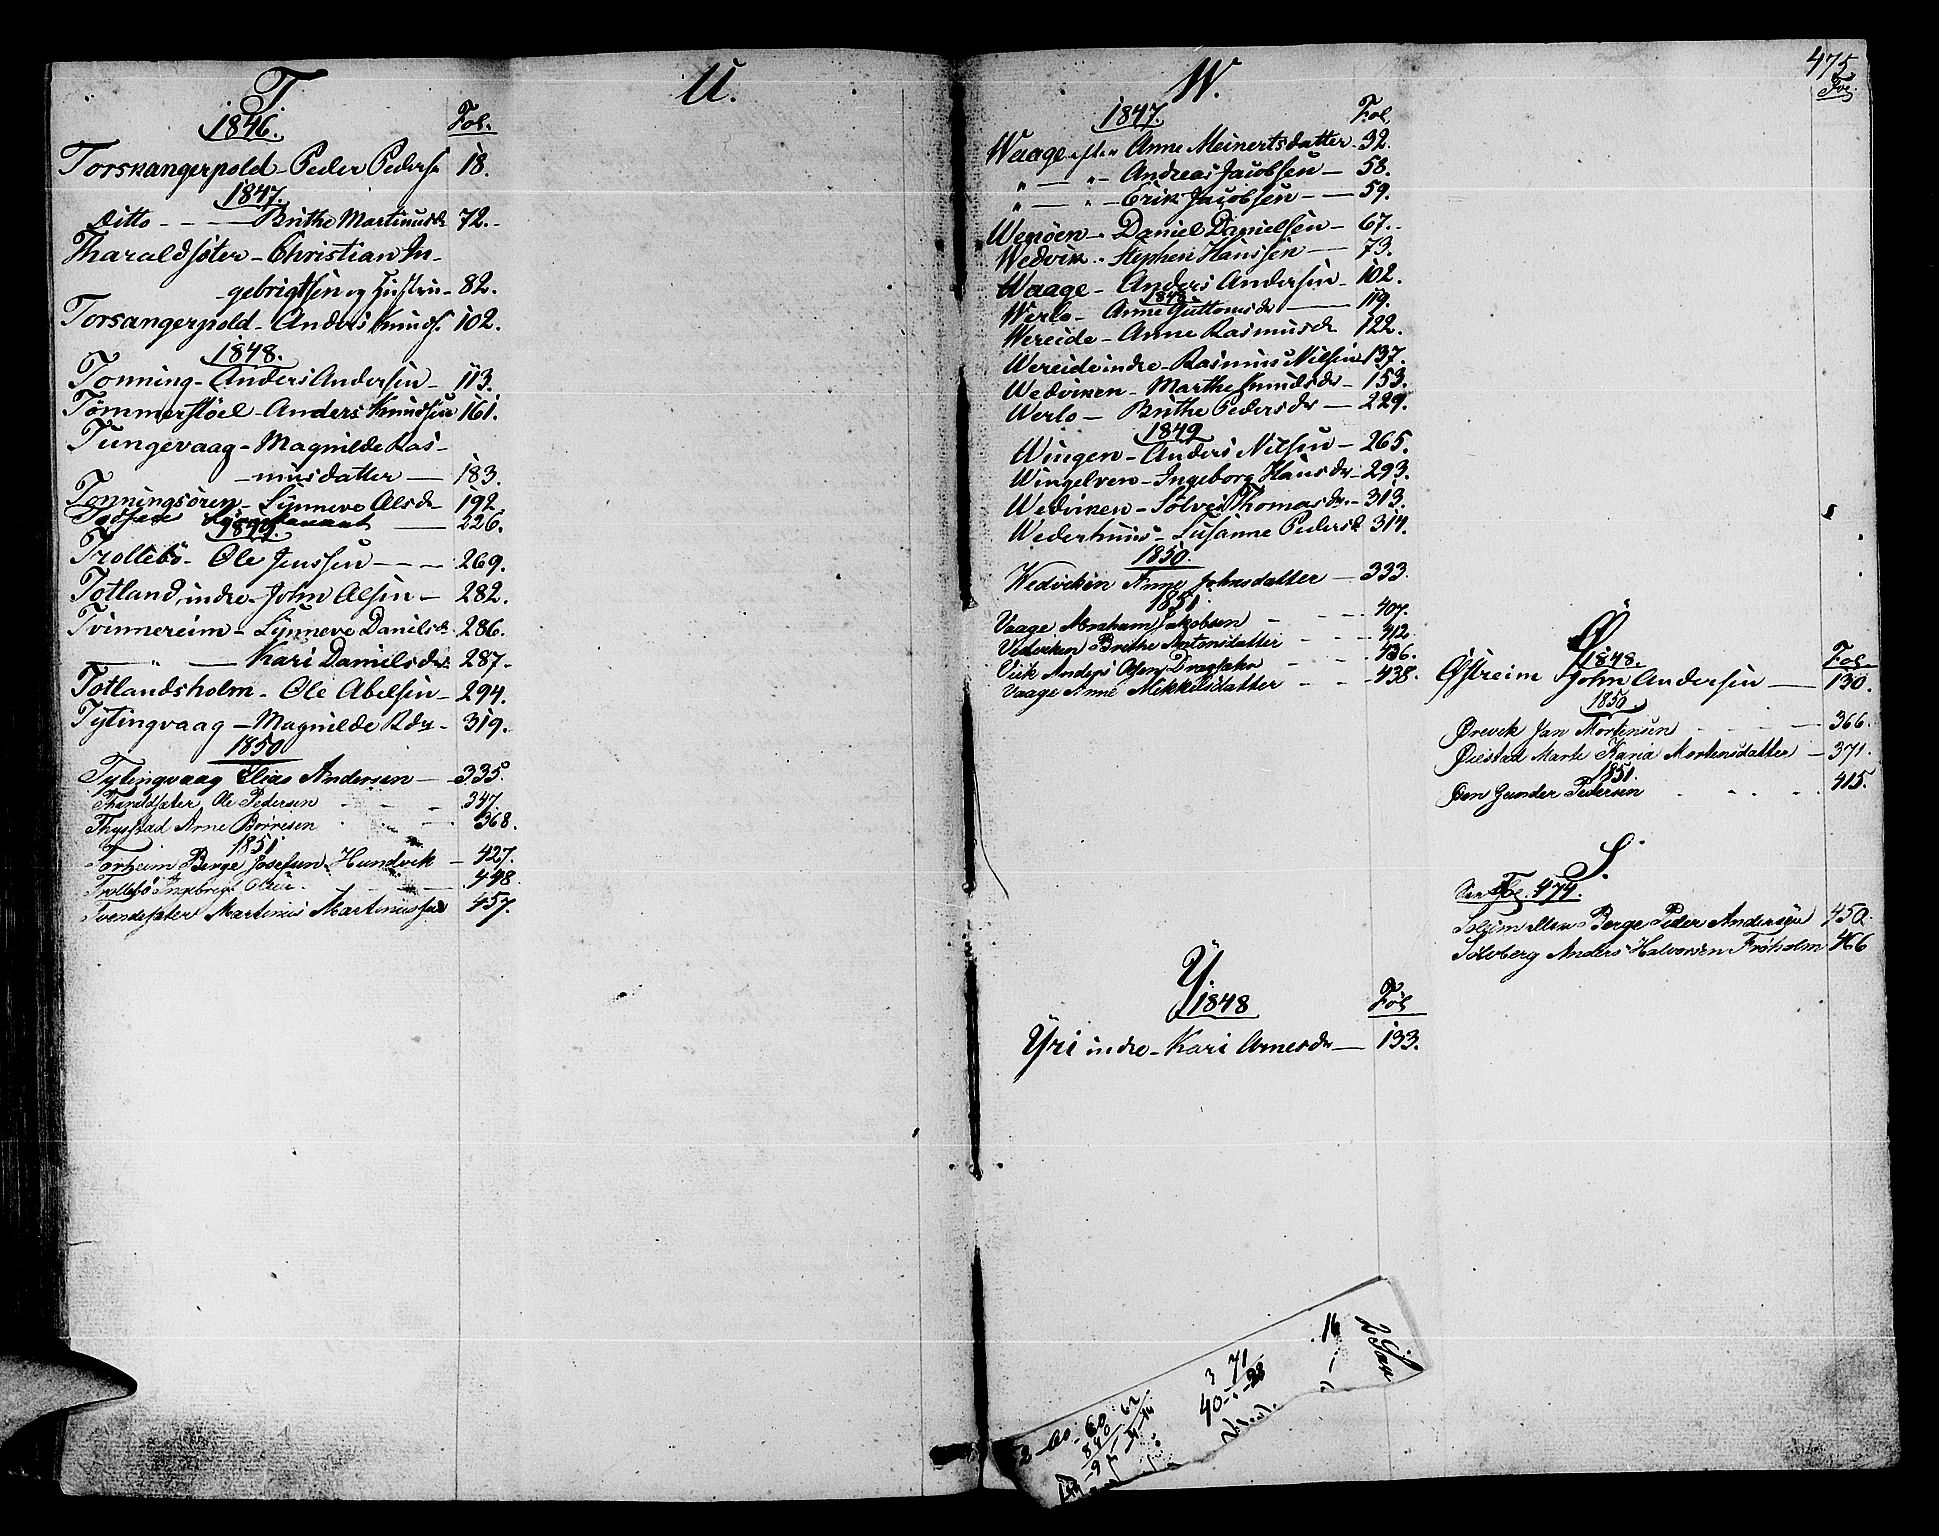 T.
1846.
Fol.
Torskangerpold - Peder Peders 18.
1847.
ditto - - - Brithe Martinusdr 72.-
Tharaldsæter - Christian In-
-gebrigtsen og Hustru - 82.
Torsangerpold - Anders Knuds. 102.
1848.
Tonning - Anders Andersen - 113.
Tømmerstöel - Anders Knudsen 161.
Tungevaag - Magnilde Ras-
-musdatter - 183.
Tonningsören - Synneve Olsdr 192.
226.
1849.
Trollebö - Ole Jenssen - - - 269.
Totland, indre - John Olsen - 282.
Tvinnereim - Synneve Danilsdr. 286.
- " - Kari Danielsdr. 287.
Totlandsholm - Ole Abelsen - 294.
Tytingvaag - Magnilde Rdr - 319.
1850
Tytingvaag Elias Andersen - 335.
Tharaldsæter Ole Pedersen - - 347.
Thystad Arne Børresen - - 368.
1851
Torheim Berge Josefsen Hundvik - 427.
Trollebö Ingebrigt Olsen - - 448.
Tvendesæter Martinus Martinussen 457.
U.
W.
1847.
Fol.
Waage - efter Anne Meinertsdatter - 32.
" - " - Andreas Jacobsen - 58.
" - " - Erik Jacobsen - - 59.
Wenöen - Daniel Danielsen - 67.
Wedvik - Stephen Hanssen - 73.
Waage - Anders Andersen - 102.
1848.
Werlo - Anne Guttormsdr - 119.
Wereide - Anne Rasmusdr 122.
Wereide indre - Rasmus Nilsen 137.
Wedviken - Marthe Knudsdr - 153.
Werlo - Brithe Pedersdr - 229.
1849
Wingen - Anders Nilsen - 265.
Wingelven - Ingeborg Hansdr - 293.
Wedviken - Sølvei Thomasdr. - 313.
Wederhuus - Susanne Pedersd. 314.
1850.
Wedviken Anne Johnsdatter - 333.
1851.
Vaage Abraham Jakobsen - - - 407.
Vedviken Brithe Antonsdatter - - - 412
Viik Anders Olsen Dragsøhn - - - 436.
Vaage Anne Mekkelsdatter - - - 438.
Y.
1848
Fol
Yri indre - Kari Arnesdr - 133.
475
Fol.
Ø
1848.
Fol.
Østreim John Andersen - 130.
1850.
Ørevik Jan Mortensen - - - 366.
Øilestad Marte Karia Mortensdatter - 371.
1851.
Øen Gunder Pedersen - - - 415.
S.
See Fol. 474.
Berge Peder Andersen 450.
Sølvberg Anders Halvorsen Frøholm 466
2 - 60 - 60
840
3 71
40
16